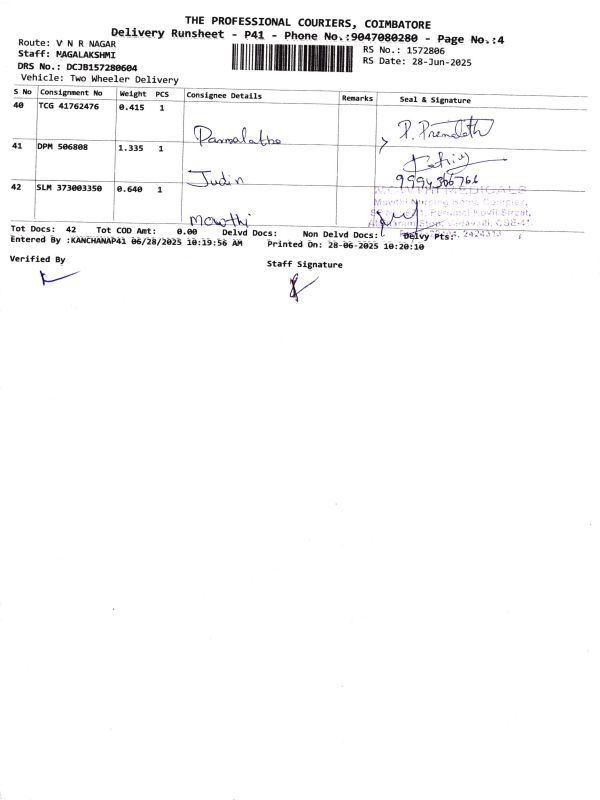 THE PROFESSIONAL COURIERS, COIMBATORE
Delivery Runsheet - P41 - Phone No.:9047080280 - Page No.:4
Route: V N R NAGAR
RS No.: 1572806
Staff: MAGALAKSHMI
RS Date: 28-Jun-2025
DRS No.: DCJB157280604
Vehicle: Two Wheeler Delivery
S No Consignment No Weight PCS Consignee Details Remarks Seal & Signature
40 TCG 41762476 0.415 1
P. Premalath
41 DPM 506808 1.335 1
Judin
9994366766
42 SLM 373003350 0.640 1
Mowthi
Mowthi Nursing Home Complex,
Tot Docs: 42 Tot COD Amt: 0.00 Delvd Docs: Non Delvd Docs: Delvy Pts:
Entered By :KANCHANAP41 06/28/2025 10:19:56 AM Printed On: 28-06-2025 10:20:10
Verified By
Staff Signature